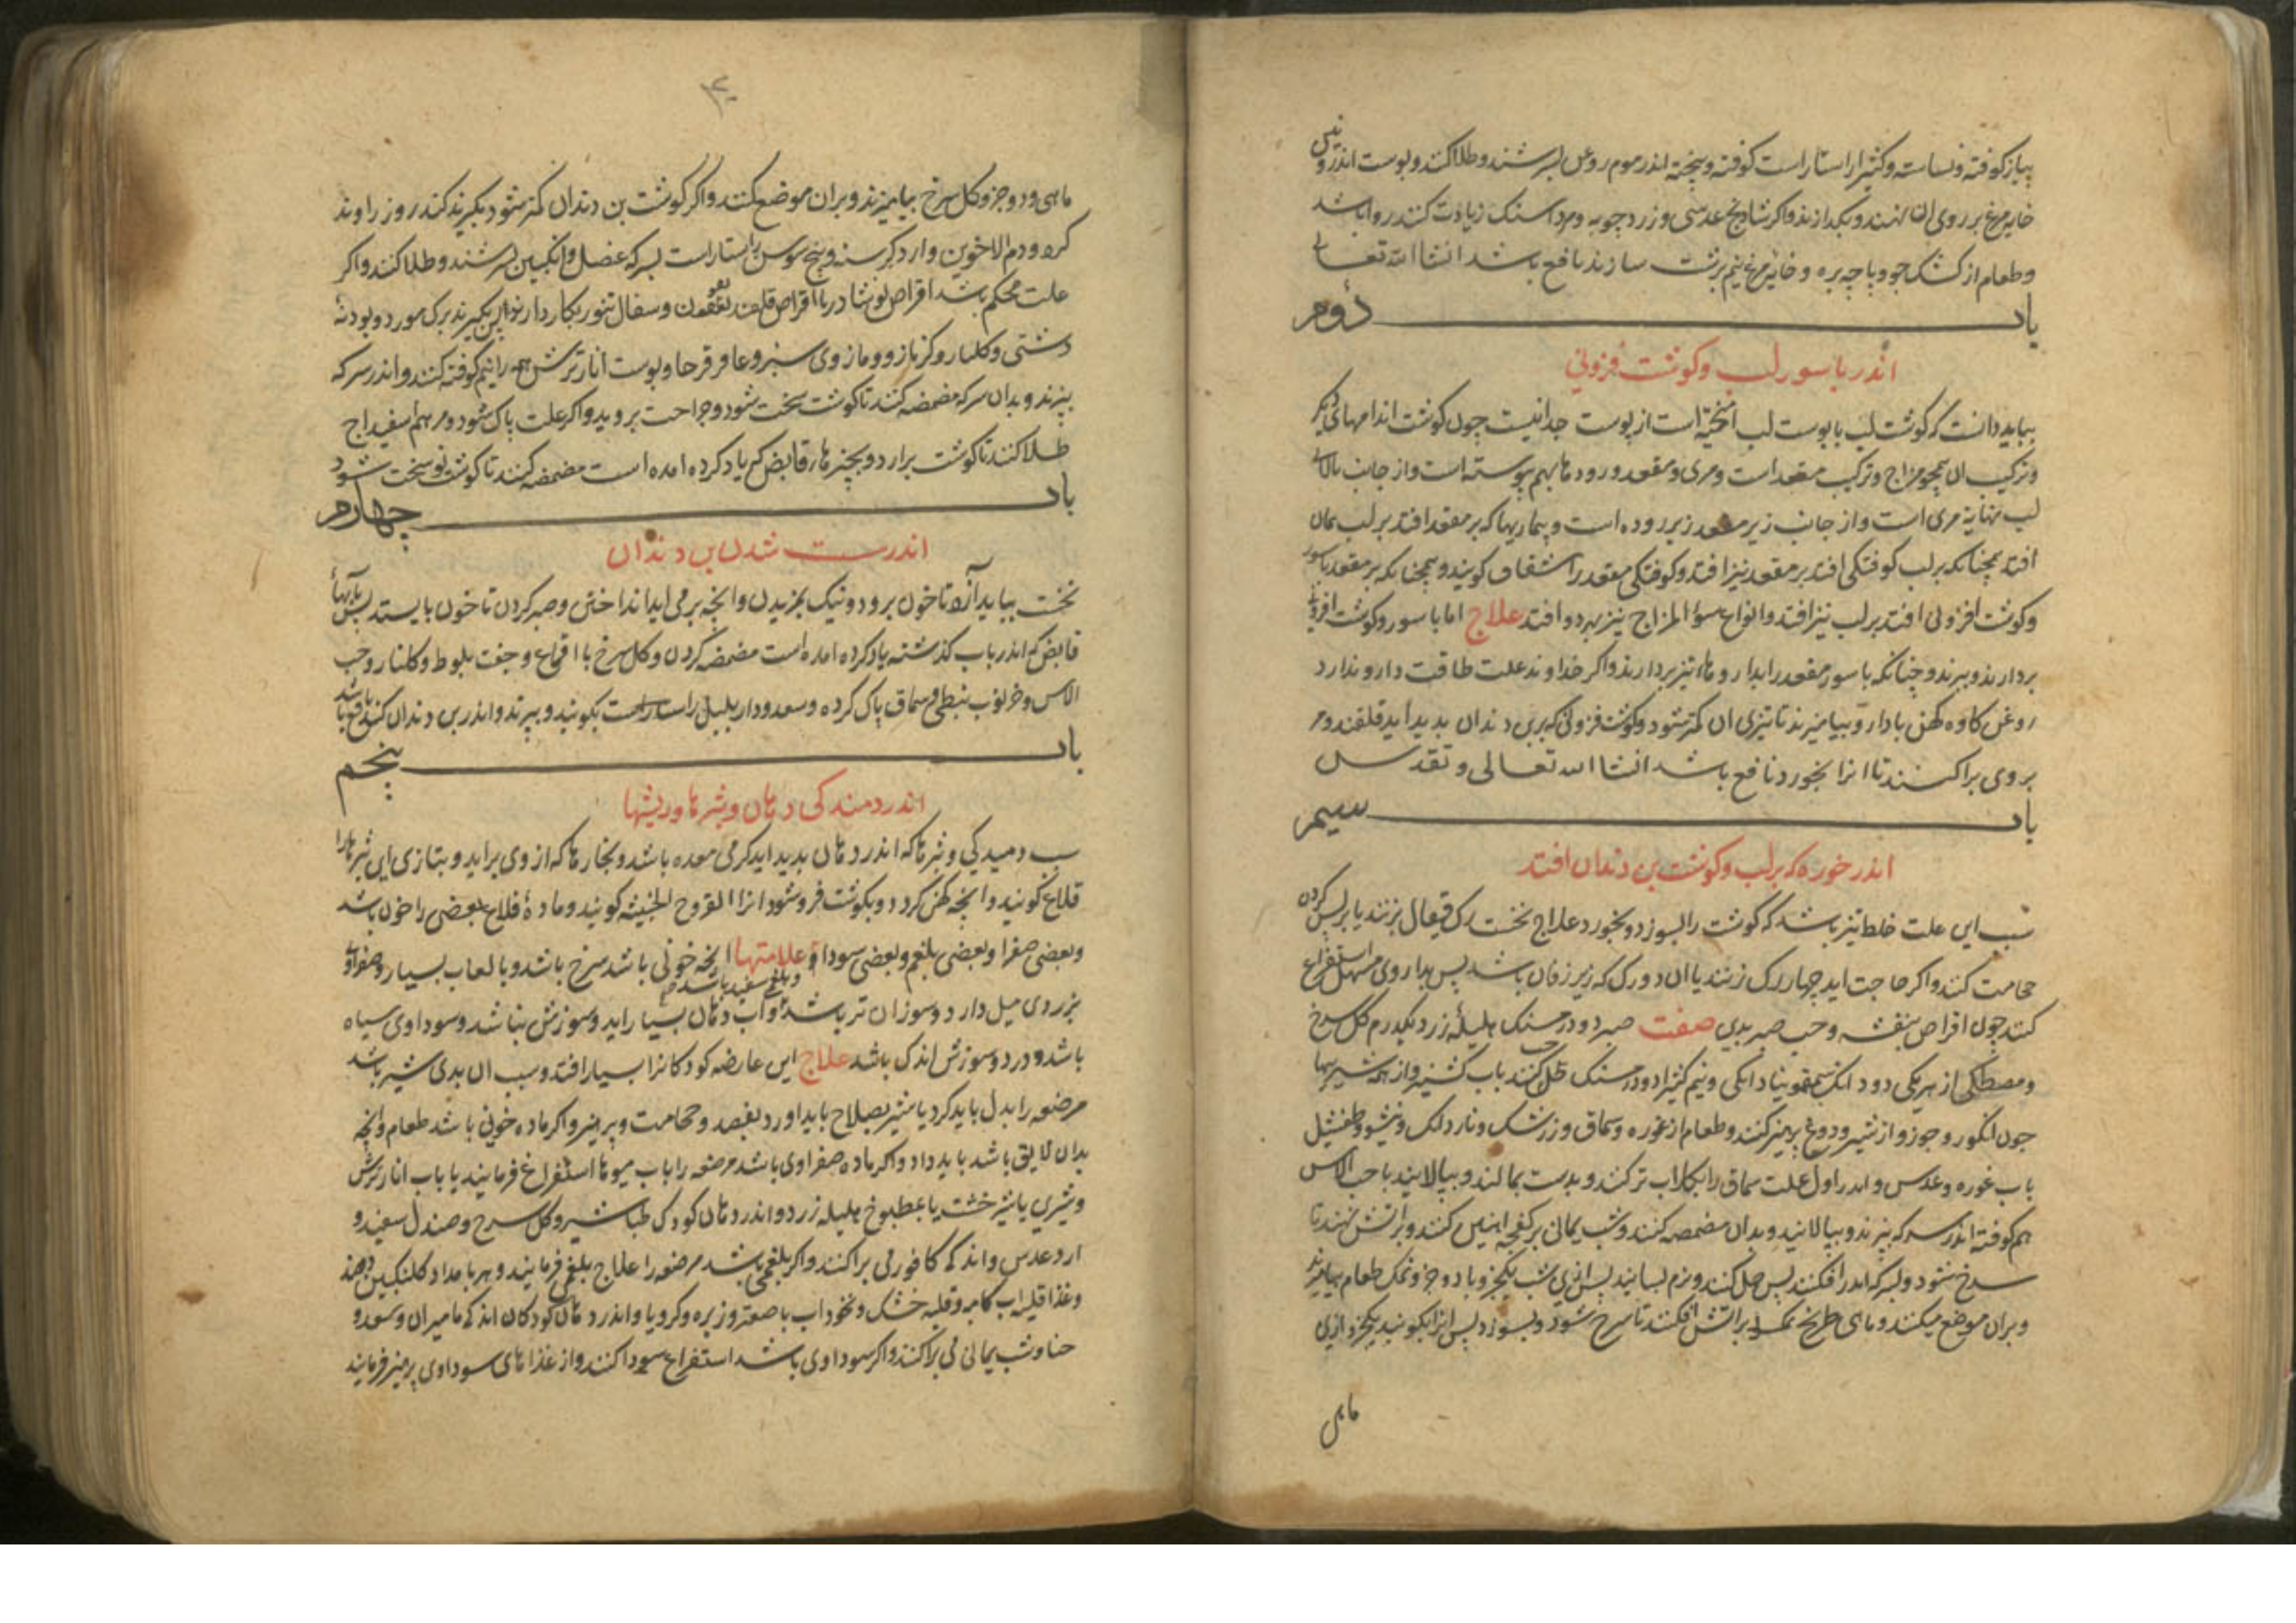 پیاز کوفته و نشاسته و کثیرا راستاراست کوفته و بیخته اندر موم روغن بسرشند و طلا کنند و پوست اندرونین
خایه مرغ بر روی ان نهند و بکدارند و اکر شادنج عدسی و زردچوبه و مرداسنک زیادت کنند روا باشد
و طعام از کشک جو و پاچه بره و خایه مرغ نیم برشت سازند نافع باشد انشا الله تعالی
باب دوم
اندر باسور لب و کوشت فزونی
بباید دانست که کوشت لب با پوست لب امیخته است از پوست جدا نیست چون کوشت اندامهای دیکر
و ترکیب ان همچو مزاج و ترکیب مقعد است و مری و مقعد و رودها بهم پیوسته است و از جانب بالا
لب نهایة مری است و از جانب زیر مقعد زیر روده است و بیماریها که بر مقعد افتد بر لب همان
افتد همچنانکه بر لب کوفتکی افتد بر مقعد نیز افتد و کوفتکی مقعد را شقاق کویند و همچنانکه بر مقعد باسور
و کوشت افزونی افتد بر لب نیز افتد و انواع سوء المزاج نیز بهر دو افتد علاج اما باسور و کوشت افزونی
بردارند و ببرند و چنانکه باسور مقعد را بداروهاء تیز بردارند و اکر خداوند علت طاقت دارو ندارد
روغن کاو کهن با دارو بیامیزند تا تیزی ان کمتر شود و کوشت فزونی که بربن دندان پدید اید قلقند
بر وی براکنند تا انرا بخورد نافع باشد انشا الله تعالی و تقدس
باب سیم
اندر خوره که بر لب و کوشت بن دندان افتد
سبب این علت خلط تیز باشد که کوشت را بسوزد و بخورد علاج نخست رک قیفال بزنند یا بر پس کردن
حجامت کنند و اکر حاجت اید چهار رک زنند یا ان دو رک که زیر زفان باشد پس بداروی مسهل استفراغ
کنند چون اقراص بنفشه و حب صبر بدین صفت صبر دو درمسنک هلیله زرد یکدرم کل سرخ
و مصطکی از هر یکی دو دانک سقمونیا دانکی و نیم کثیرا دو درمسنک حب کنند باب کشنیز و از همه شیرینیها
چون انکور و جوز و از شیر و دوغ پرهیز کنند و طعام از غوره و سماق و زرشک و ناردانک و طفشیل
باب غوره و عدس و اندر اول علت سماق را بکلاب تر کنند و بدست بمالند و بپالایند با حب الاس
هم کوفته اندر سرکه بپزند و بپالایند و بدان مضمضه کنند و شب یمانی بر کفچه اهنین کنند و براتش نهند تا
سرخ شود و بسرکه اندر افکنند پس حل کنند و نرم بسایند پس ازین شب یکجزو با دو جزو نمک طعام بیامیزند
و بران موضع میکنند و ماهی طریخ نمکسود براتش افکنند تا سرخ شود و بسوزد پس انرا بکوبند یکجزو ازین
ماهی
ماهی و دو جزو کل سرخ بیامیزند و بران موضع کنند و اکر کوشت بن دندان کمتر شود بکیرند کندر و زراوند
کرد و دم الاخوین و ارد کرسنه و بیخ سوسن راستاراست بسرکه عنصل و انکبین بسرشند و طلا کنند و اکر
علت محکم باشد اقراص نوشادر با اقراص و سفال تنور بکار دارند این بکیرند برک مورد و پودنه
دشتی و کلنار و کزمازو و مازوی سبز و عاقرقرحا و پوست انار ترش همه را نیم کوفته کنند و اندر سرکه
بپزند و بدان سرکه مضمضه کنند تا کوشت سخت شود و جراحت بروید و اکر علت پاک شود مرهم اسفیداج
طلا کنند تا کوشت برارد و بچیزهاء قابض که یاد کرده امده است مضمضه کنند تا کوشت نو سخت شود
باب چهارم
اندر سست شدن بن دندان
نخست بباید ازرد تا خون برود و نیک بمزیدن و انچه برمی اید انداختن و صبر کردن تا خون بایستد پس بابهاء
قابض که اندر باب کذشته یاد کرده امده است مضمضه کردن و کل سرخ با اقماع و جفت بلوط و کلنار و حب
الاس و خرنوب نبطی و سماق پاک کرده و سعد و دار پلپل راستاراست بکوبند و ببیزند و اندر بن دندان کنند نافع باشد
باب پنجم
اندر دمیدکی دهان و بثرها و ریشها
سبب دمیدکی و بثرها که اندر دهان پدید اید کرمی معده باشد و بخارها که از وی براید و بتازی این بثرها را
قلاع کویند و انچه کهن کردد و بکوشت فرو شود انرا القروح الخبیثه کویند و مادهٔ قلاع بعضی را خون باشد
و بعضی صفرا و بعضی بلغم و بعضی سودا علامتها انچه خونی باشد سرخ باشد و با لعاب بسیار و صفراوی
بزردی میل دارد و سوزان تر باشد و بلغمی سفید باشد و اب دهان بسیار اید و سوزش نباشد و سوداوی سیاه
باشد و درد و سوزش اندک باشد علاج این عارضه کودکانرا بسیار افتد و سبب ان بدی شیر باشد
مرضعه را بدل باید کرد یا شیر بصلاح باید اورد بفصد و حجامت و پرهیز و اکر ماده خونی باشد طعام و انچه
بدان لایق باشد باید داد و اکر ماده صفراوی باشد مرضعه را باب میوها استفراغ فرمایند یا باب انار ترش
و شیرین یا شیر خشت یا مطبوخ هلیله زرد و اندر دهان کودک طباشیر و کل سرخ و صندل سفید و
ارد عدس و اندکی کافور می پراکنند و اکر بلغمی باشد مرضعه را علاج بلغمی فرمایند و هر بامداد کلنکبین دهند
و غذا قلیه اب کامه و قلیه خشک و نخوداب با صعتر و زیره و کرویا و اندر دهان کودکان اندکی مامیران و سعد و
حنا و شب یمانی می پراکنند و اکر سوداوی باشد استفراغ سودا کنند و از غذاهای سوداوی پرهیز فرمایند